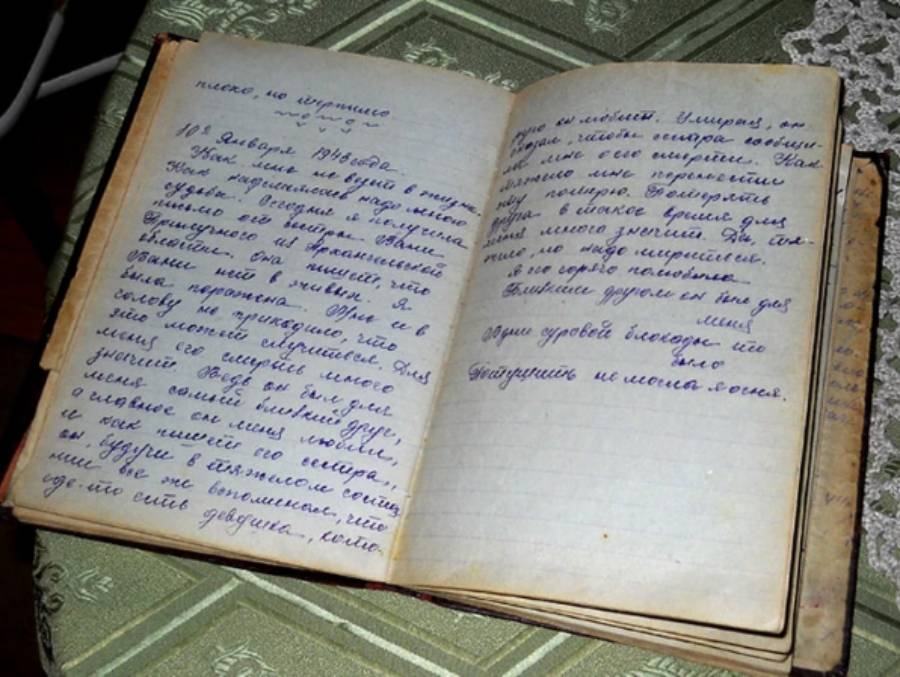 плохо, но терпимо
10го Января 1943 года.
Как мне не везёт в жизни.
Как надсмеялась надо мною
судьба. Сегодня я получила
письмо от сестры Вани
из Архангельской
области. Она пишет, что
Вани нет в живых. Я
была поражена. Мне и в
голову не приходило, что
это может случиться. Для
меня его смерть много
значит. Ведь он был для
меня самый близкий друг,
а главное он меня любил,
и как пишет его сестра,
он, будучи в тяжёлом состоя
нии все же вспоминал, что
где-то есть девушка, кото-
рую он любит. Умирая, он
сказал, чтобы сестра сообщи-
ла мне о его смерти. Как
тяжело мне перенести
эту потерю. Потерять
друга в такое время для
меня много значит. Да, тя-
жело, но надо мириться.
Я его горячо полюбила
Близким другом он был для
меня
В дни суровой блокады то
было
Потушить не могла я огня.